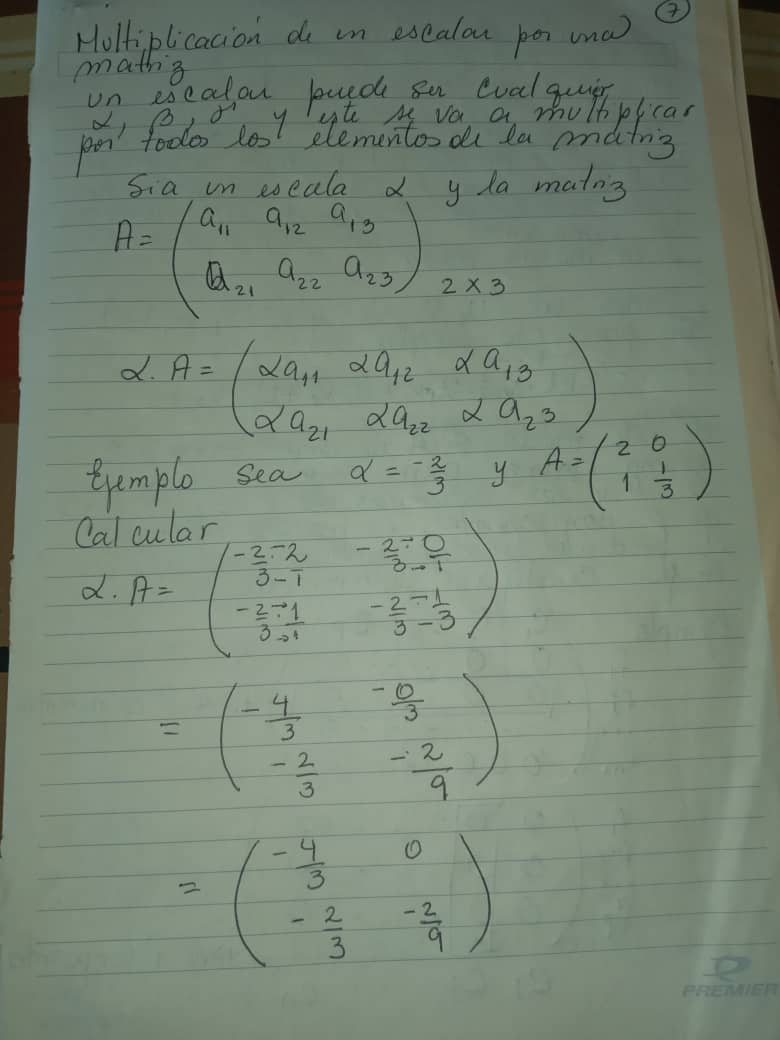 7
Multiplicación de un escalar por una
matriz
un escalar puede ser cualquier
α, β, γ, y este se va a multiplicar
por todos los elementos de la matriz
Sia un escala α y la matriz
A = ( a11 a12 a13
a21 a22 a23 ) 2 x 3
α. A = ( αa11 αa12 αa13
αa21 αa22 αa23 )
Ejemplo sea α = -2/3 y A = ( 2 0
1 1/3 )
Calcular
α. A = ( -2/3 · 2/1 -2/3 · 0/1
-2/3 · 1/1 -2/3 · 1/3 )
= ( -4/3 -0/3
-2/3 -2/9 )
= ( -4/3 0
-2/3 -2/9 )
PREMIER